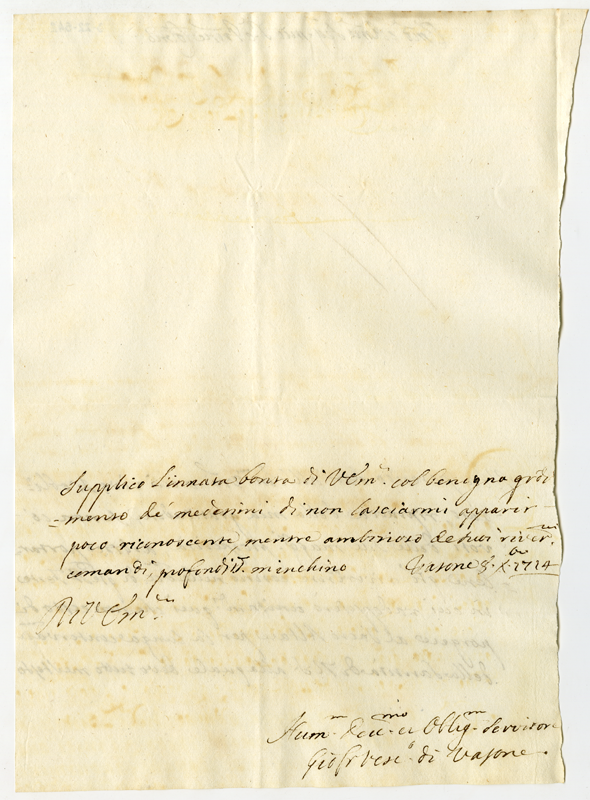 Supplico l'innata bontà di V Em.ª col benigno gradi
=mento de' medesimi di non lasciarmi apparir
poco riconoscente, mentre ambizioso de suoi river.mi
comandi, profond.te m'inchino Vasone 8. X.bre 1714
Di V. Em.za
Hum.mo Dev.mo et Oblig.mo Servitore
Gios: Vesc.o di Vasone.